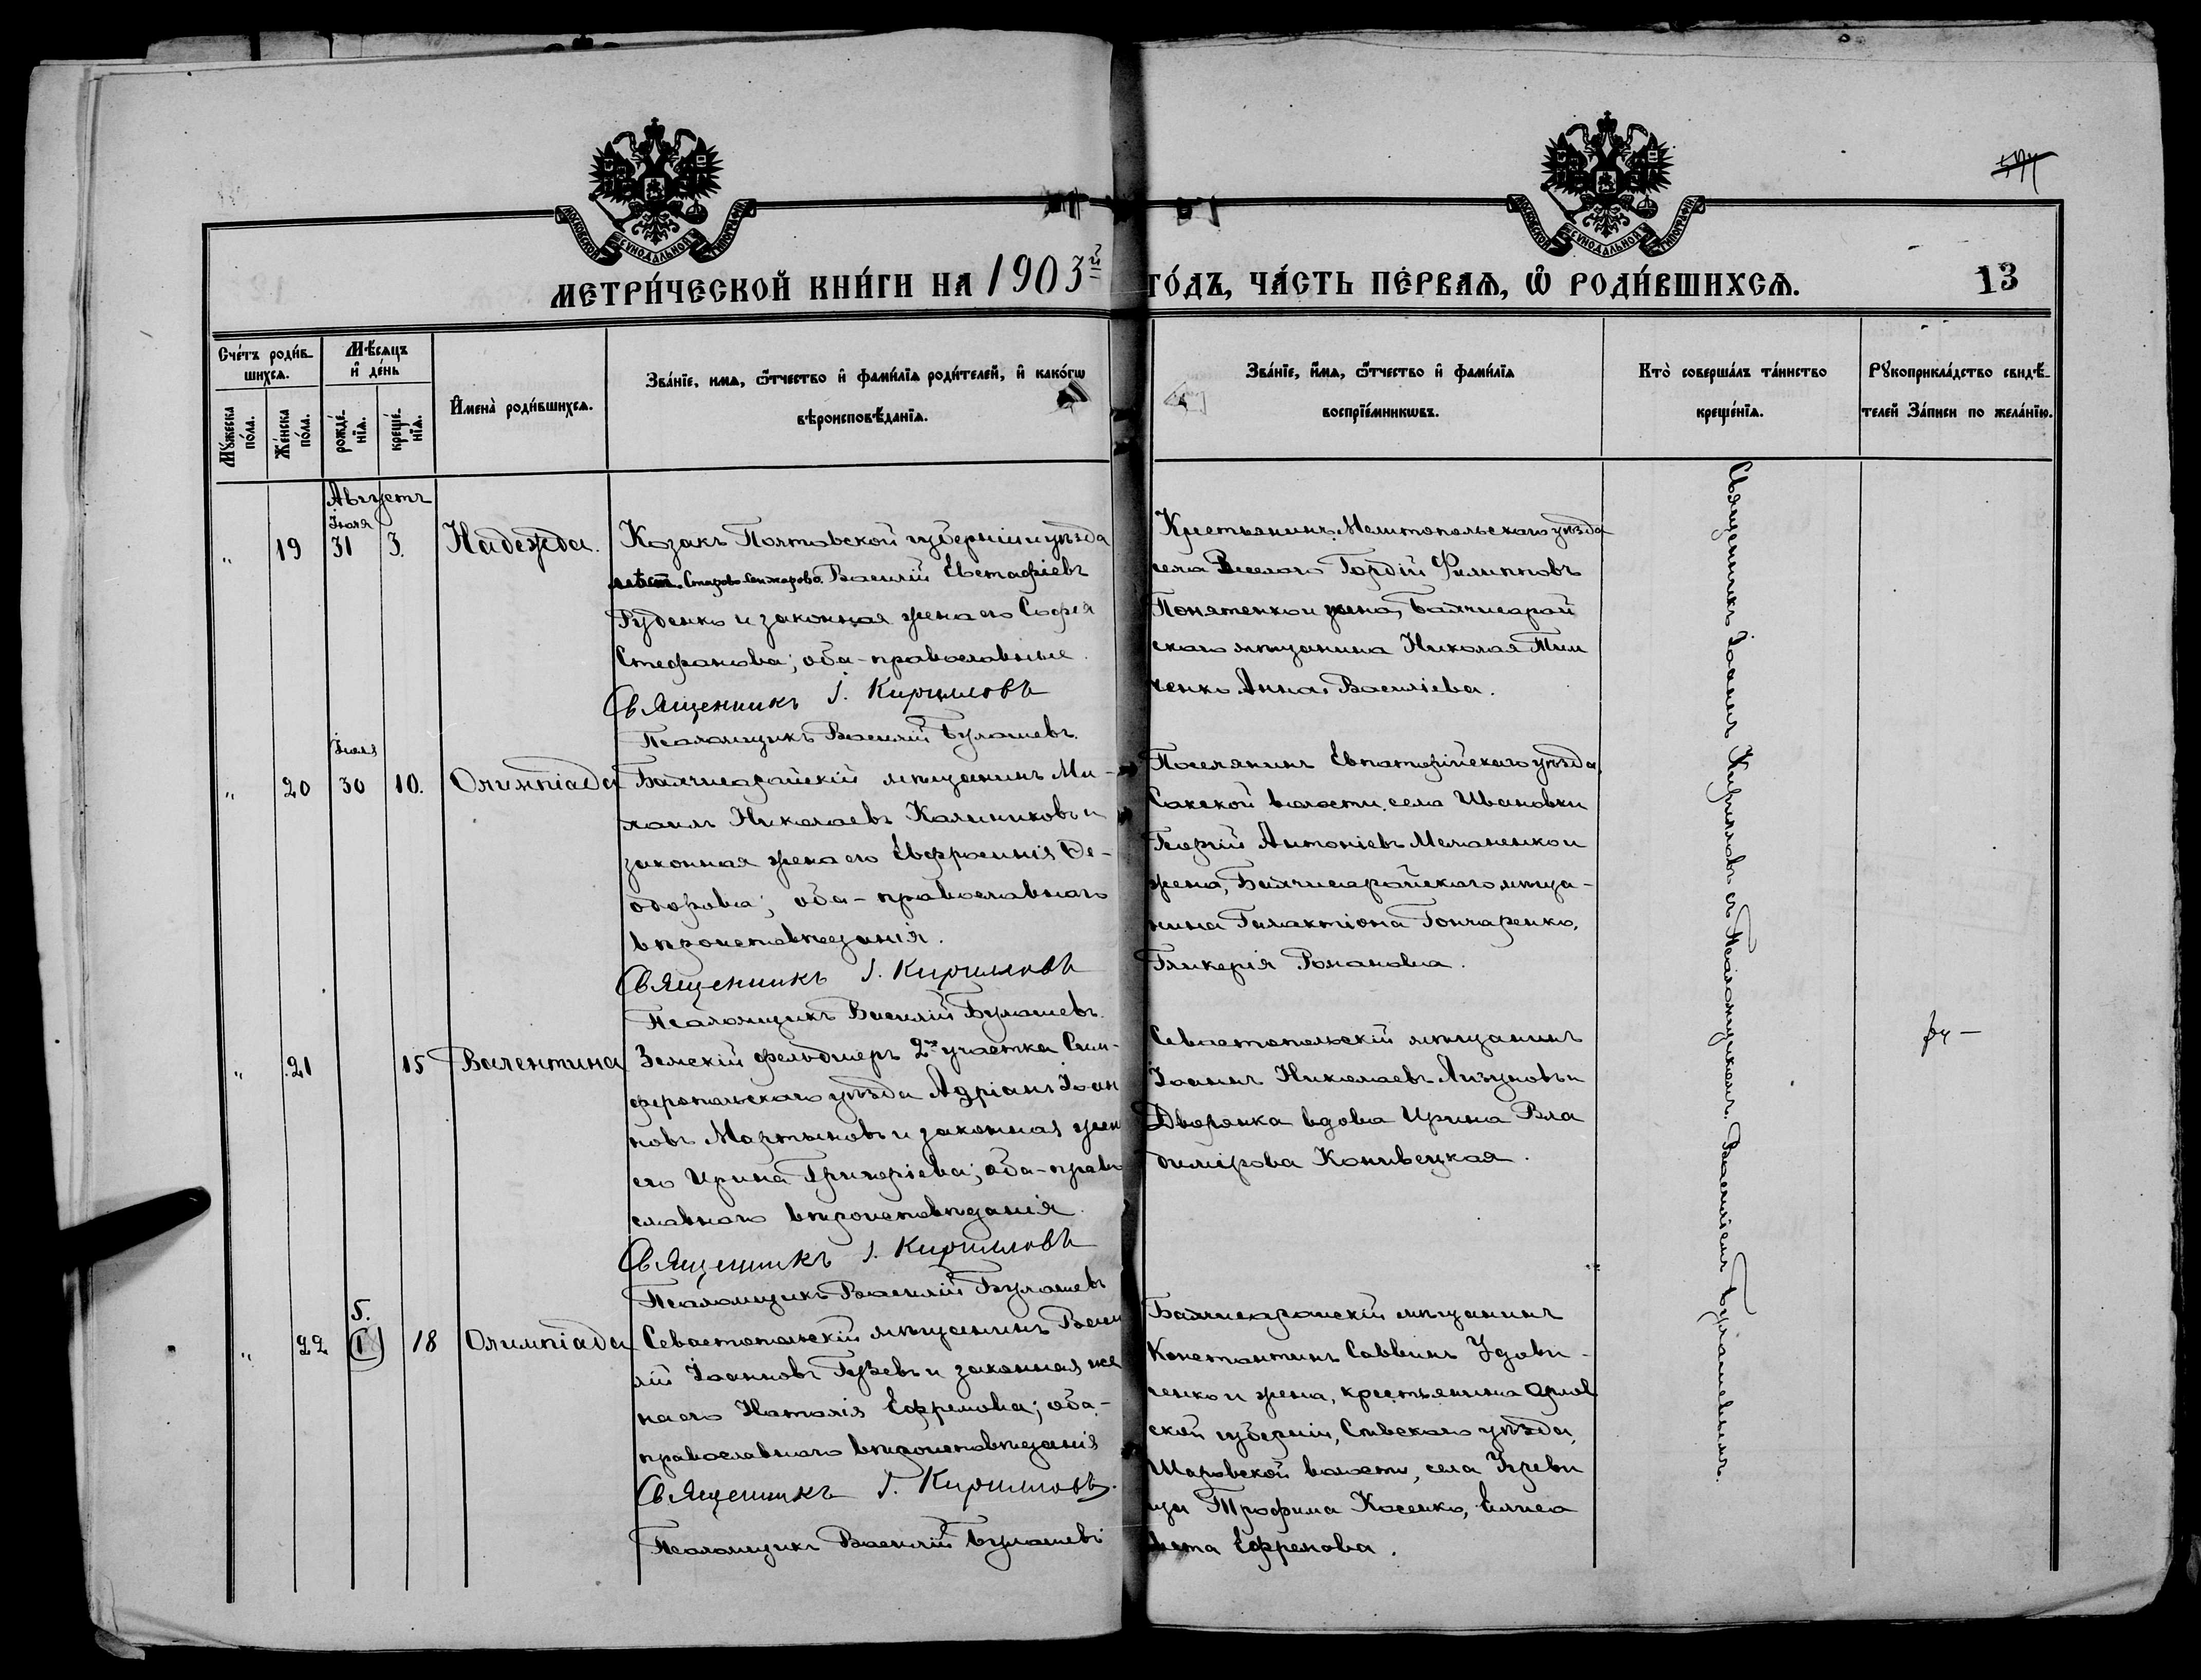 МОСКОВСКОЙ СѴНОДАЛЬНОЙ ТИПОГРАФІИ
МОСКОВСКОЙ СѴНОДАЛЬНОЙ ТИПОГРАФІИ
МЕТРИ́ЧЕСКОЙ КНИ́ГИ НА 1903й ГО́ДЪ, ЧА́СТЬ ПЕ́РВАѦ, Ѡ҆ РОДИ́ВШИХСѦ.
13
Сче́тъ роди́в-
шихсѧ.
Мꙋ́жеска по́ла.
Же́нска по́ла.
Мѣ́сѧцъ
и҆ де́нь
рожде́-
нїѧ.
креще́-
нїѧ.
И҆мена̀ роди́вшихсѧ.
Зва́нїе, имѧ, ѻ҆́тчество и҆ фами́лїѧ роди́телей, и҆ како́гѡ
вѣроисповѣ́данїѧ.
Зва́нїе, и҆́мѧ, ѻ҆́тчество и҆ фами́лїѧ
воспрїе́мникѡвъ.
Кто̀ соверша́лъ та́инство
креще́нїѧ.
Рꙋкоприкла́дство свидѣ́-
телей За́писи по жела́нїю.
Августъ
Іюля
" 19 31 3. Надежда.
Козакъ Полтавской губерніи и уѣзда
мѣст. Старо-Сенжарова Василій Евстафіевъ
Руденко и законная жена его Софія
Стефанова; оба-православные.
Священникъ І. Кирилловъ
Псаломщикъ Василій Булашевъ.
Крестьянинъ Мелитопольскаго уѣзда
села Веселаго Гордій Филипповъ
Понятенко и жена, Бахчисарай
скаго мѣщанина Николая Тим
ченко Анна Василіева.
Іюля
" 20 30 10. Олимпіада
Бахчисарайскій мѣщанинъ Ми-
хаилъ Николаевъ Калиниковъ и
законная жена его Евфросинія Ѳе-
одорова; оба-православнаго
вѣроисповѣданія.
Священникъ І. Кирилловъ
Псаломщикъ Василій Булашевъ.
Поселянинъ Евпаторійскаго уѣзда,
Сакской волости, села Ивановки
Георгій Антоніевъ Меланенко и
жена, Бахчисарайскаго мѣща-
нина Галактіона Гончаренко,
Гликерія Романова.
" 21 15 Валентина
Земскій фельдшеръ 2го участка Сим-
феропольскаго уѣзда Адріанъ Іоан
новъ Мартыновъ и законная жен
его Ирина Григоріева; оба-право
славнаго вѣроисповѣданія.
Священникъ І. Кирилловъ
Псаломщикъ Василій Булашевъ
Севастопольскій мѣщанинъ
Іоаннъ Николаевъ Лизуновъ и
Дворянка вдова Ирина Вла
димірова Конивецкая.
5.
" 22 18 Олимпіада
Севастопольскій мѣщанинъ Васи
лій Іоанновъ Гузевъ и законная же
на его Наталія Ефремова; оба-
православнаго вѣроисповѣданія
Священникъ І. Кирилловъ.
Псаломщикъ Василій Булашевъ
Бахчисарайскій мѣщанинъ
Константинъ Саввинъ Удови-
ченко и жена, крестьянина Орлов
ской губерніи, Сѣвскаго уѣзда,
Шаровской волости, села Угреви
щи Трофима Косенко, Елиса
вета Ефремова.
Священникъ Іоаннъ Кирилловъ съ Псаломщикомъ Василіемъ Булашевымъ.